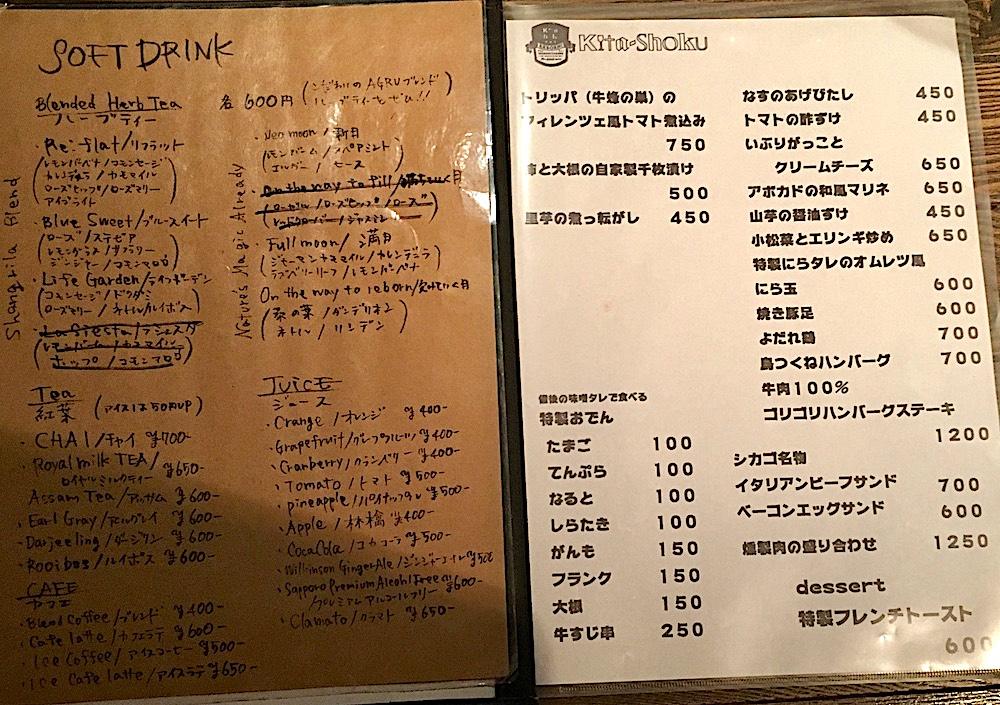 SOFT DRINK
Blended Herb Tea 各600円 (こだわりのAGRUブレンド
ハーブティー ハーブティーをぜひ!!)
Shangrila Blend
・Re:flat/リフラット
(レモンバーベナ/コモンセージ
カレンデュラ/カモマイル
ローズヒップ/ローズマリー
アイブライト)
・Blue Sweet/ブルースイート
(ローズ/ステビア
レモングラス/
ジンジャー/コモンマロウ)
・Life Garden/ライフガーデン
(コモンセージ/ドクダミ
ローズマリー/ネトル/ルイボス)
・La Fiesta/ラフィエスタ
(レモンバーム/カモマイル
ホップ/コモンマロウ)
Nature's Magic Already
・Neo moon/新月
(レモンバーム/スペアミント
エルダー/ヒース)
・On the way to fill/満ちていく月
(ローゼル/ローズヒップ/ローズ
レッドクローバー/ジャスミン)
・Full moon/満月
(ジャーマンカモマイル/カレンデュラ
ラズベリーリーフ/レモンバーベナ)
On the way to reborn/欠けていく月
(桑の葉/ダンデリオン
ネトル/リンデン)
Tea
紅茶 (アイスは50円UP)
・CHAI/チャイ ¥700-
・Royal milk TEA/
ロイヤルミルクティー ¥650-
・Assam Tea/アッサム ¥600-
・Earl Gray/アールグレイ ¥600-
・Darjeeling/ダージリン ¥600-
・Rooibos/ルイボス ¥600-
CAFE
カフェ
・Blend Coffee/ブレンド ¥400-
・Cafe latte/カフェラテ ¥600-
・Ice Coffee/アイスコーヒー ¥500-
・Ice Cafe latte/アイスラテ ¥650-
JUICE
ジュース
・Orange/オレンジ ¥400-
・Grapefruit/グレープフルーツ ¥400-
・Cranberry/クランベリー ¥400-
・Tomato/トマト ¥500-
・pineapple/パイナップル ¥500-
・Apple/林檎 ¥400-
・CocaCola/コカコーラ ¥500-
・Wilkinson GingerAle/ジンジャーエール ¥500
・Sapporo Premium Alcohl Free
/プレミアムアルコールフリー ¥600-
・Clamato/クラマト ¥650-
Kita-Shoku
トリッパ（牛蜂の巣）の
フィレンツェ風トマト煮込み
750
柿と大根の自家製千枚漬け
500
里芋の煮っ転がし 450
備後の味噌タレで食べる
特製おでん
たまご 100
てんぷら 100
なると 100
しらたき 100
がんも 150
フランク 150
大根 150
牛すじ串 250
なすのあげびたし 450
トマトの酢ずけ 450
いぶりがっこと
クリームチーズ 650
アボカドの和風マリネ 650
山芋の醤油ずけ 450
小松菜とエリンギ炒め 650
特製にらタレのオムレツ風
にら玉 600
焼き豚足 600
よだれ鶏 700
鳥つくねハンバーグ 700
牛肉100%
ゴリゴリハンバーグステーキ
1200
シカゴ名物
イタリアンビーフサンド 700
ベーコンエッグサンド 600
燻製肉の盛り合わせ 1250
dessert
特製フレンチトースト
600